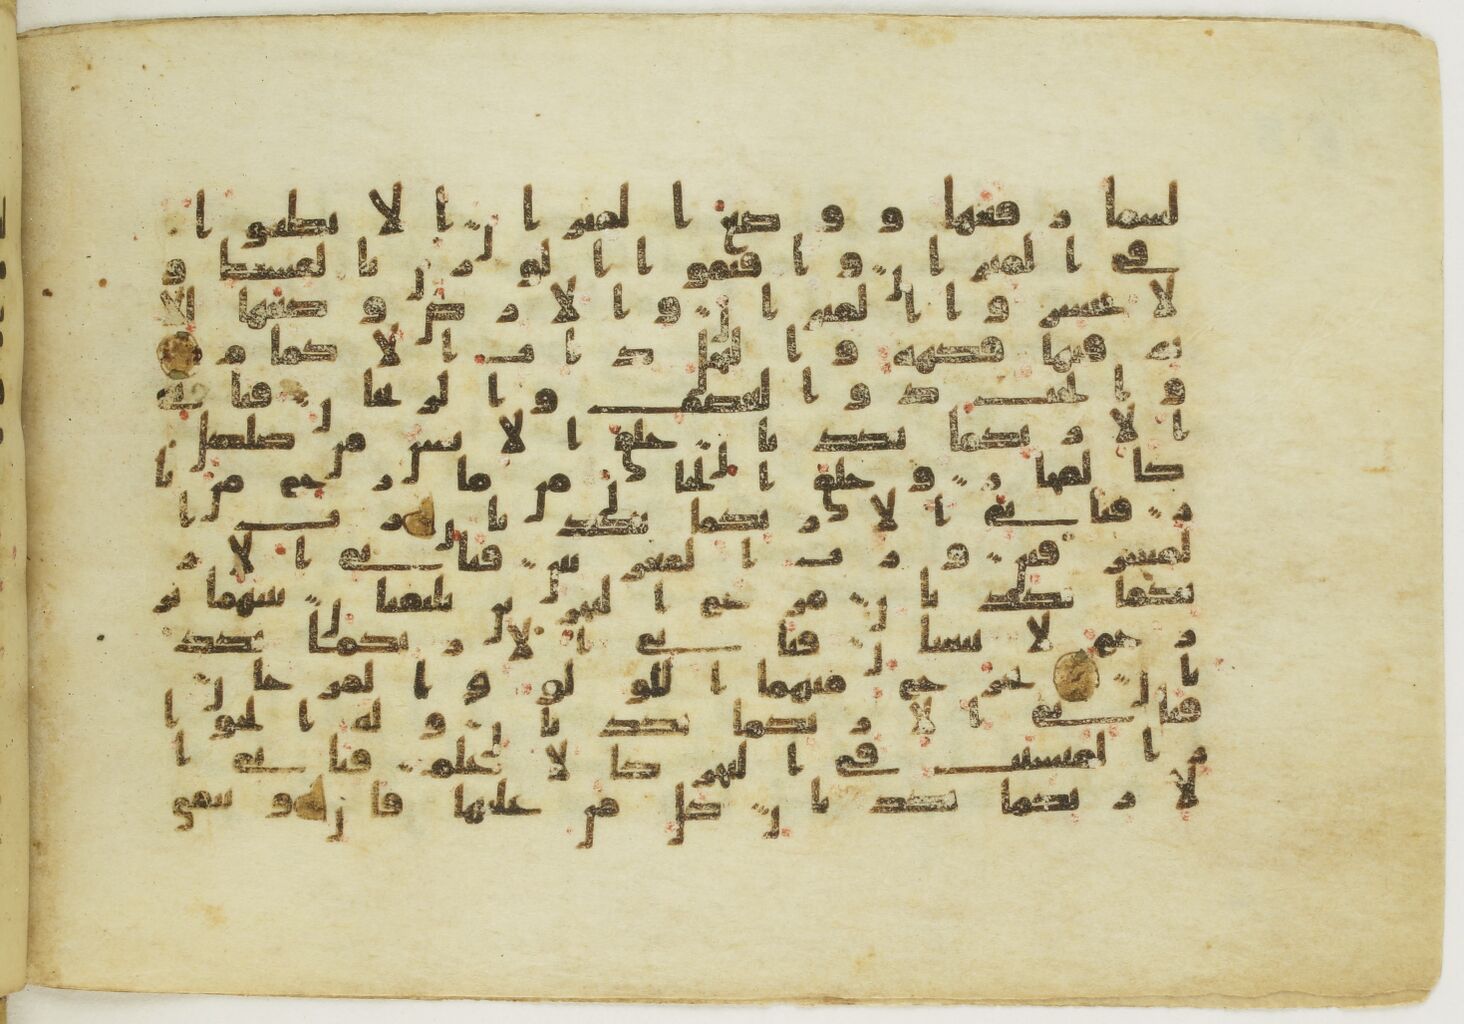 لسما رفعها ووضع الميزان الا تطغوا
في الميزان واقيموا الوزن بالقسط و
لا تخسروا الميزان والارض وضعها للا
نم فيها فكهة والنخل ذات الاكمام
والحب ذو العصف والريحان فباي
الا ربكما تكذبان خلق الانسن من صلصل
كالفخار وخلق الجان من مارج من نا
ر فباي الا ربكما تكذبان رب ا
لمشرقين ورب المغربين فباي الا ر
بكما تكذبان مرج البحرين يلتقيان بينهما بر
زخ لا يبغيان فباي الا ربكما تكذ
بان يخرج منهما اللولو والمرجان
فباي الا ربكما تكذبان وله الجوا
ر المنشيت في البحر كالاعلم فباي ا
لا ربكما تكذبان كل من عليها فان ويبقى